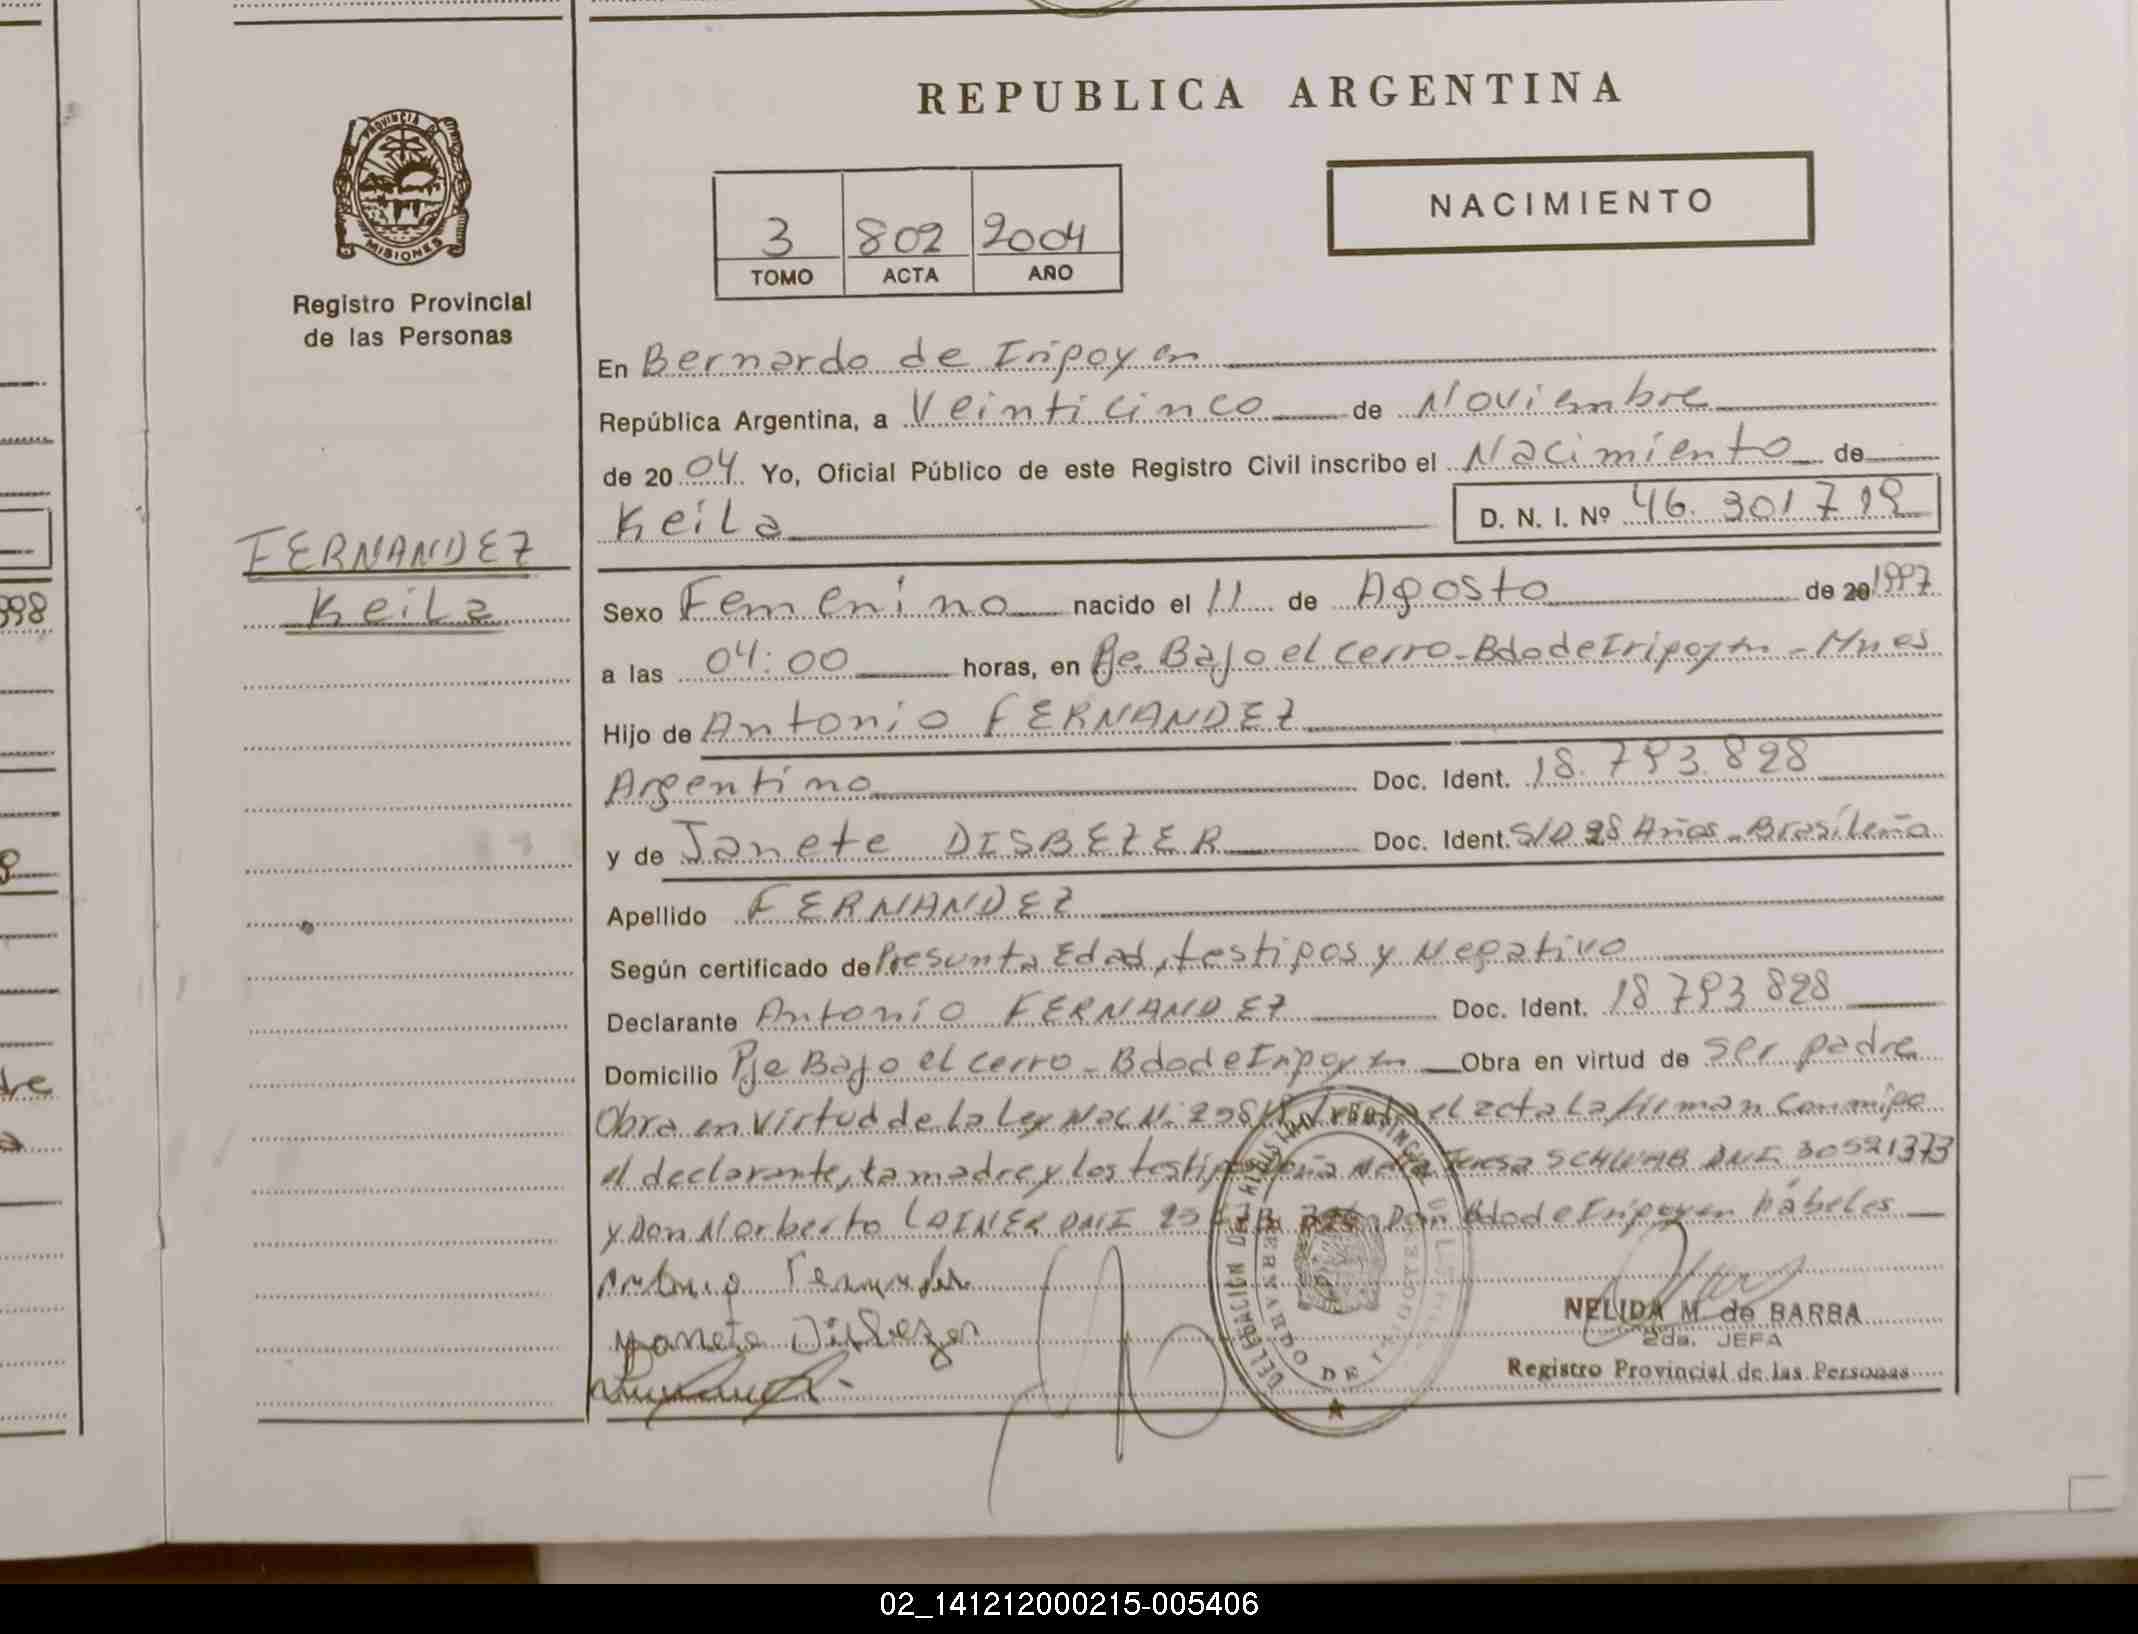 REPUBLICA ARGENTINA
PROVINCIA DE
MISIONES
Registro Provincial
de las Personas
NACIMIENTO
3 802 2004
TOMO ACTA AÑO
En Bernardo de Irigoyen
República Argentina, a Veinticinco de Noviembre
de 2004 Yo, Oficial Público de este Registro Civil inscribo el Nacimiento de
Keila D. N. I. Nº 46.301719
FERNANDEZ
Keila
Sexo Femenino nacido el 11 de Agosto de 20 1997
a las 04:00 horas, en Pje. Bajo el cerro - Bdo de Irigoyen - Mnes
Hijo de Antonio FERNANDEZ
Argentino Doc. Ident. 18.793.828
y de Janete DISBEZER Doc. Ident. S/D 28 Años - Brasileña
Apellido FERNANDEZ
Según certificado de Presunta Edad, testigos y Negativo
Declarante Antonio FERNANDEZ Doc. Ident. 18.793.828
Domicilio Pje Bajo el cerro - Bdo de Irigoyen Obra en virtud de ser padre
Obra en virtud de la Ley Nac N: el acta la firman conmigo
el declarante, la madre y los testigos SCHWAB DNI 30521373
y Don Norberto LAINER DNI Bdo de Irigoyen hábeles
Antonio Fernandez
Disbezer
DELEGACION DEL REGISTRO PROVINCIAL DE LAS
BERNARDO DE IRIGOYEN
NELIDA M. de BARBA
2da. JEFA
Registro Provincial de las Personas
998
02_141212000215-005406